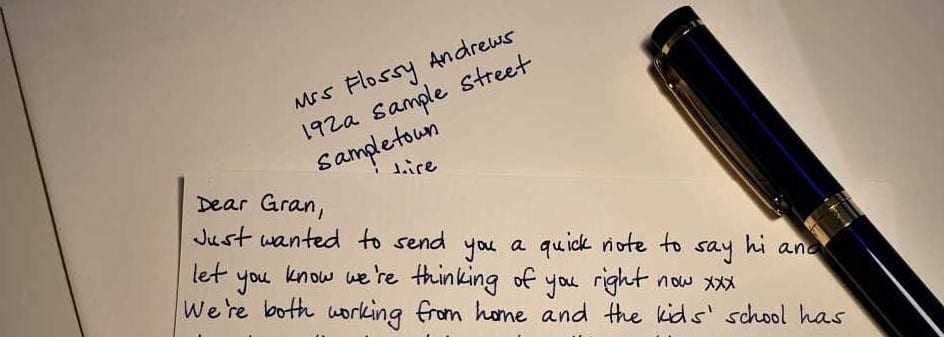 Mrs Flossy Andrews
192a Sample Street
Sampletown
Dear Gran,
Just wanted to send you a quick note to say hi and
let you know we're thinking of you right now xxx
We're both working from home and the kids' school has